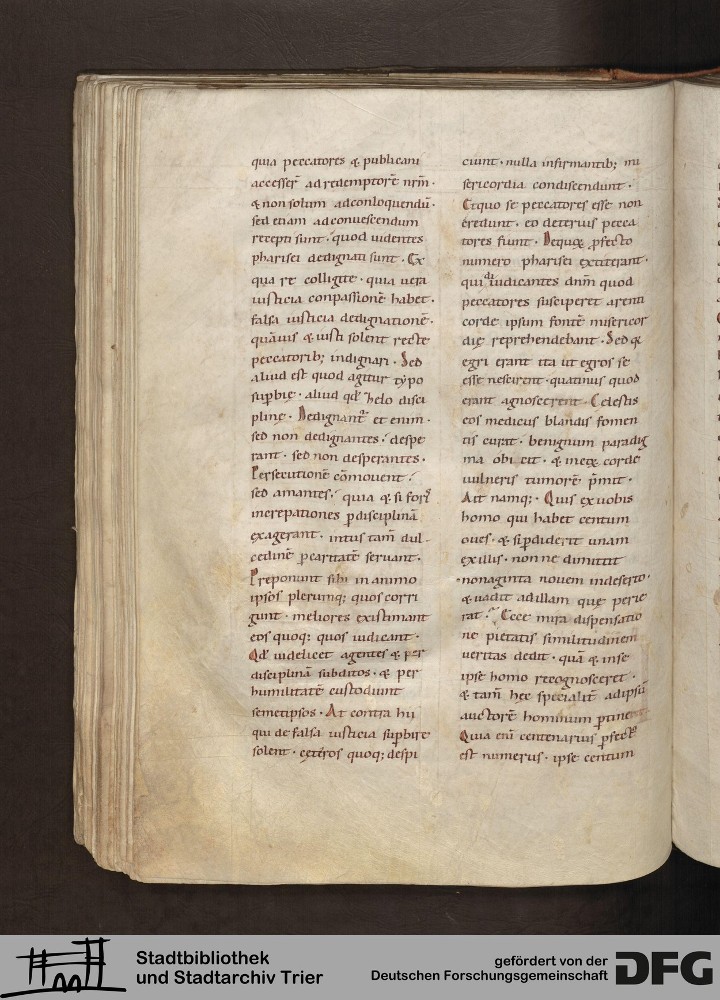 quia peccatores & publicani
accesser̄ ad redemptorē nr̄m·
& non solum ad conloquendū·
sed etiam ad conuescendum
recepti sunt· quod uidentes
pharisei dedignati sunt· Ex
qua re colligite· quia uera
iusticia conpassionē habet·
falsa iusticia dedignationē·
quāuis & iusti solent recte
peccatorib; indignari· Sed
aliud est quod agitur typo
supbię· aliud qd̄ zelo disci
plinę· Dedignant̄ et enim·
sed non dedignantes· despe
rant· sed non desperantes·
Persecutionē cōmouent·
sed amantes· quia & si foris
increpationes p disciplinā
exagerant· intus tam̄ dul
cedinē p caritatē seruant·
Preponunt sibi in animo
ipsos plerumq; quos corri
gunt· meliores existimant
eos quoq; quos iudicant·
Qd̄ uidelicet agentes & per
disciplinā subditos· & per
humilitatē custodiunt
semetipsos· At contra hii
qui de falsa iusticia supbire
solent· ceteros quoq; despi
ciunt· nulla infirmantib; mi
sericordia condiscendunt·
Et quo se peccatores esse non
credunt· eo deterius pecca
tores fiunt· De quoꝝ pfecto
numero pharisei extiterant·
qui diiudicantes dn̄m quod
peccatores susciperet arenti
corde ipsum fontē misericor
dię reprehendebant· Sed q̄
egri erant ita ut egros se
esse nescirent· quatinus quod
erant agnoscerent· Celestis
eos medicus blandis fomen
tis curat· benignum paradig
ma obicit· & in eoꝝ corde
uulneris tumorē p̄mit·
Ait namq;· Quis ex uobis
homo qui habet centum
oues· & si pdiderit unam
ex illis· nonne dimittit
nonaginta nouem in deserto·
& uadit ad illam quę perie
rat· Ecce mira dispensatio
ne pietatis similitudinem
ueritas dedit· quā & in se
ipse homo recognosceret·
& tam̄ hęc specialit̄ ad ipsū
auctorē hominum ptineret·
Quia eni centenarius pfectus
est numerus· ipse centum
Stadtbibliothek
und Stadtarchiv Trier
gefördert von der
Deutschen Forschungsgemeinschaft
DFG